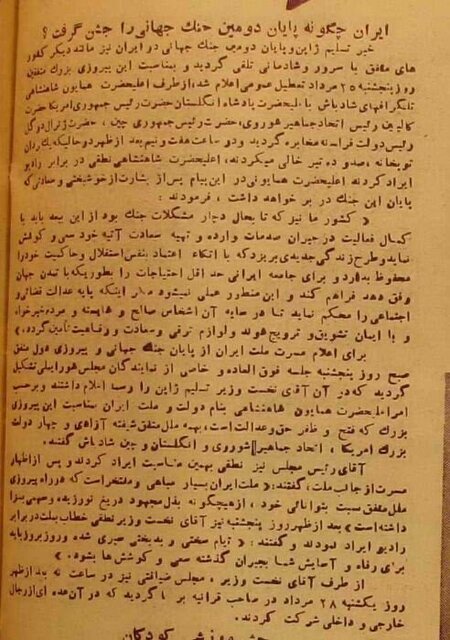 ایران چگونه پایان دومین جنک جهانی را جشن گرفت؟
خبر تسلیم ژاپن و پایان دومین جنک جهانی در ایران نیز مانند دیگر کشور
های متفق با سرور و شادمانی تلقی گردید و بمناسبت این پیروزی بزرک متفقین
روز پنجشنبه ۲۵ مرداد تعطیل عمومی اعلام شد، از طرف اعلیحضرت همایون شاهنشاهی
تلگرافهای شادباش با علیحضرت پادشاه انگلستان حضرت رئیس جمهوری امریکا حضرت
کالینین رئیس اتحاد جماهیر شوروی، حضرت رئیس جمهوری چین، حضرت ژنرال دوگل
رئیس دولت فرانسه مخابره گردید و دو ساعت هفت و نیم بعد از ظهر در حالیکه
توپخانه، صد و ده تیر خالی میکردند، اعلیحضرت شاهنشاهی نطقی در برابر رادیو
ایراد کردند اعلیحضرت همایونی در این پیام پس از بشارت از خوشبختی و سعادتی که
پایان این جنك در بر خواهد داشت، فرمودند:
« کشور ما نیز که تا بحال دچار مشکلات جنک بود از این ببعد باید با
کمال فعالیت در جبران صدمات وارده و تهیه سعادت آتیه خود سعی و کوشش
نماید و طرح زندگی جدیدی بریزد که با اتکاء اعتماد بنفس استقلال و حاکمیت خود را
محفوظ بدارد و برای جامعه ایرانی حد اقل احتیاجات را بطوریکه با تمدن جهان
وفق دهد فراهم کند و این منظور عملی نمیشود مگر اینکه پایه عدالت قضائی و
اجتماعی را محکم نماید تا در سایه آن اشخاص صالح و شایسته و مردم خیرخواه
و با ایمان تشویق و ترویج شوند و لوازم ترقی و سعادت و رفاهیت تامین گردد.»
برای اعلام مسرت ملت ایران از پایان جنک جهانی و پیروزی دول متفق
صبح روز پنجشنبه جلسه فوق العاده و خاصی از نمایندگان مجلس شورایملی تشکیل
گردید که در آن آقای نخست وزیر تسلیم ژاپن را رسما اعلام داشتند و برحسب
امر اعلیحضرت همایون شاهنشاهی بنام دولت و ملت ایران بمناسبت این پیروزی
بزرك که فتح و ظفر حق و عدالت است، بهمه ملل متفق شیفته آزادی و چهار دولت
بزرك امریکا، اتحاد جماهیر شوروی و انگلستان و چین شادباش گفتند.
آقای رئیس مجلس نیز نطقی بهمین مناسبت ایراد کردند و پس از اظهار
مسرت از جانب ملت، گفتند: « ملت ایران بسیار مباهی و مفتخر است که در راه پیروزی
ملل متفق نسبت بتوانائی خود، از هیچگونه بذل مجهود دریغ نورزیده و سهمی بسزا
داشته است» بعد از ظهر روز پنجشنبه نیز آقای نخست وزیر نطقی خطاب بملت در برابر
رادیو ایراد نمودند و گفتند: « ایام سختی و بدبختی سپری شده و روز بروز باید
برای رفاه و آسایش شما بجبران گذشته سعی و کوشش ها بشود.»
از طرف آقای نخست وزیر، مجلس ضیافتی نیز در ساعت نه بعد از ظهر
روز یکشنبه ۲۸ مرداد در صاحب قرانیه بر پا گردید که در آن عده ای از رجال
خارجی و داخلی شرکت کردند.